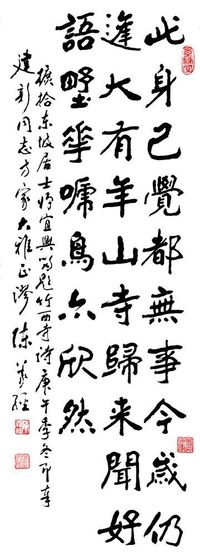 此身已覺都無事今歲仍
逢大有年山寺歸来聞好
語野花啼鳥亦欣然
橫拾东坡居士归宜興題竹西寺诗庚午季冬即奉
建彩同志方家大雅正谬 陈